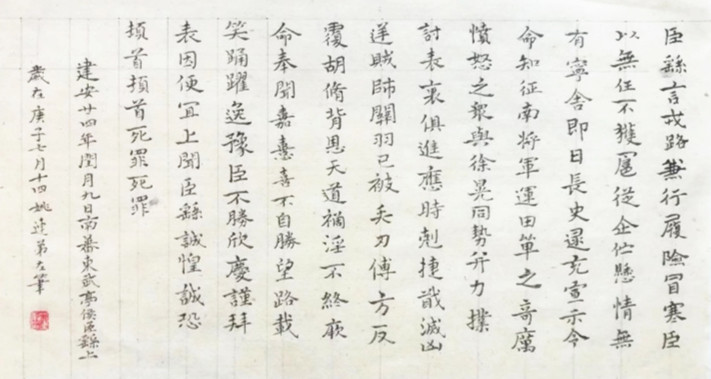 臣繇言戎路兼行履險冒寒臣
以無任不獲扈從企佇懸情無
有寧舍即日長史逯充宣示令
命知征南將軍運田單之奇厲
憤怒之眾與徐晃同勢并力撲
討表裏俱進應時剋捷馘滅凶
逆賊帥關羽已被矢刃傅方反
覆胡脩背恩天道禍淫不終厥
命奉聞嘉憙喜不自勝望路載
笑踊躍逸豫臣不勝欣慶謹拜
表因便宜上聞臣繇誠惶誠恐
頓首頓首死罪死罪
建安廿四年閏月九日南蕃東武亭侯臣繇上
歲在庚子七月十四姚建第左筆